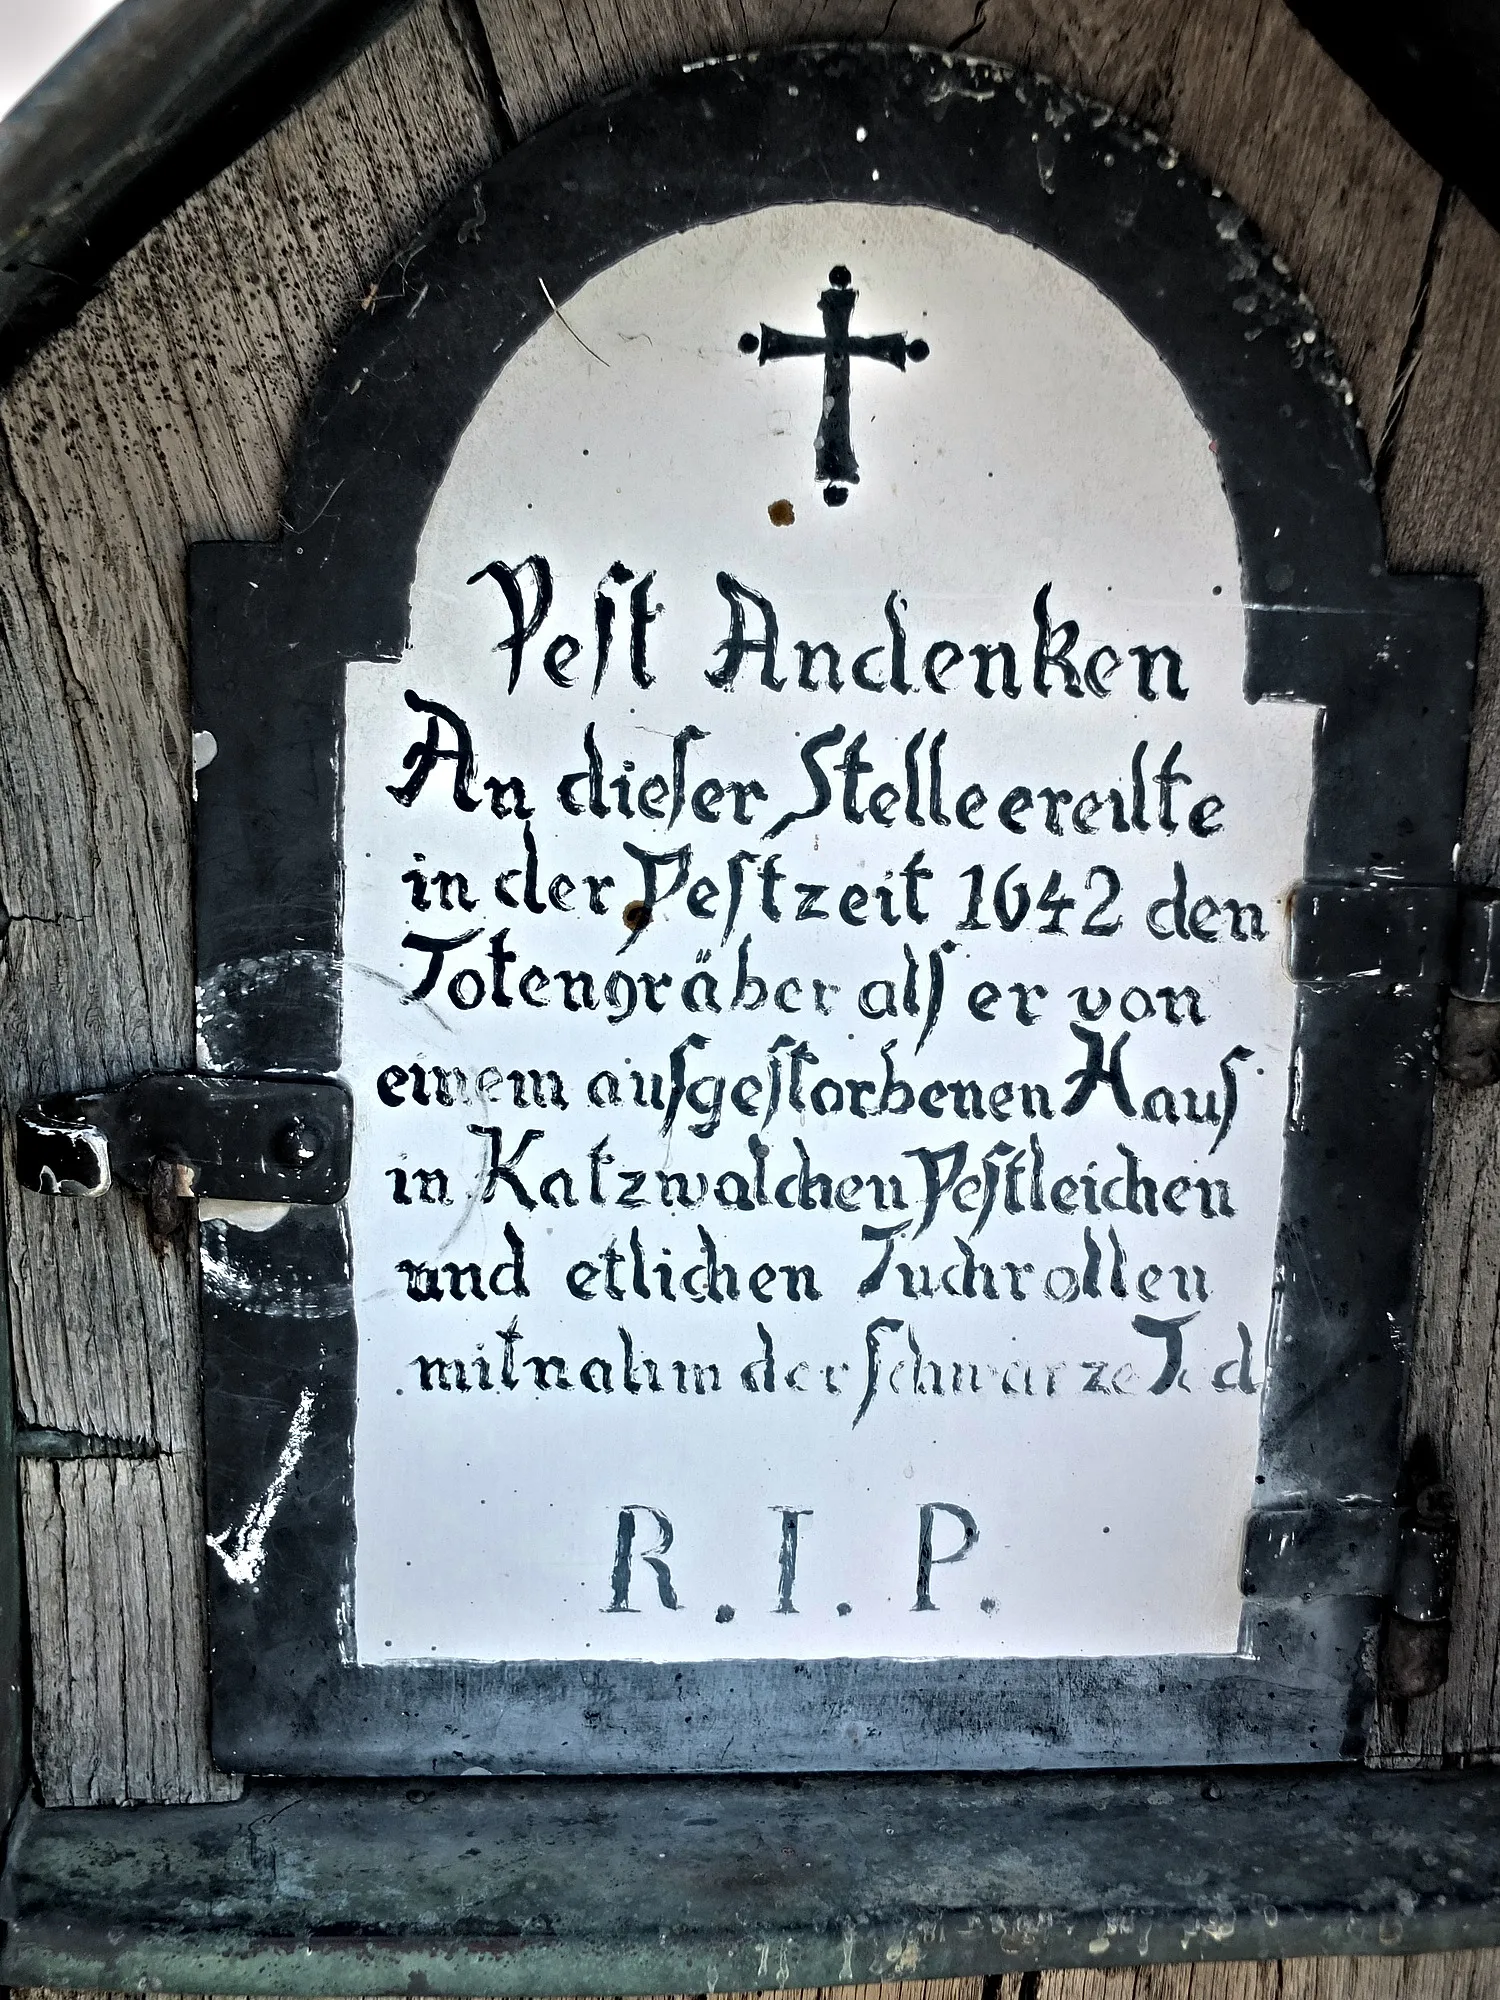 Pest Andenken
An dieser Stelle ereilte
in der Pestzeit 1642 den
Totengräber alſ er von
einem auſgestorbenen Hauſ
in Katzwalchen Pestleichen
und etlichen Tuchrollen
mitnahm der schwarze Tod
R.I.P.